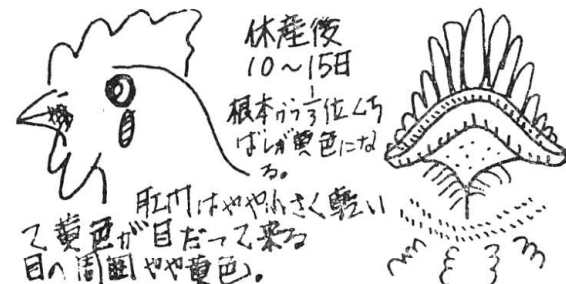 休産後
10～15日
根本から1/3位くち
ばしが黄色にな
る。
肛門はやや小さく乾い
て黄色が目だって来る
目の周囲やや黄色。